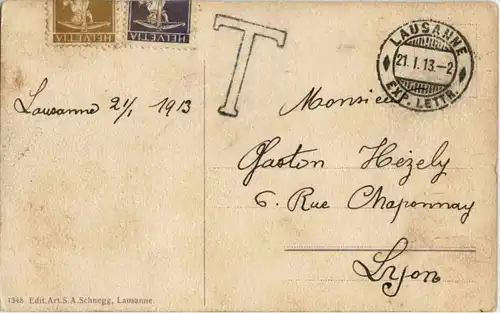 HELVETIA
HELVETIA
T
LAUSANNE
21. I. 13.-2
EXP. LETTR.
Lausanne 21/1 1913
Monsieur
Gaston Hézely
6. Rue Chaponnay
Lyon
1348 Edit.Art.S.A.Schnegg, Lausanne.